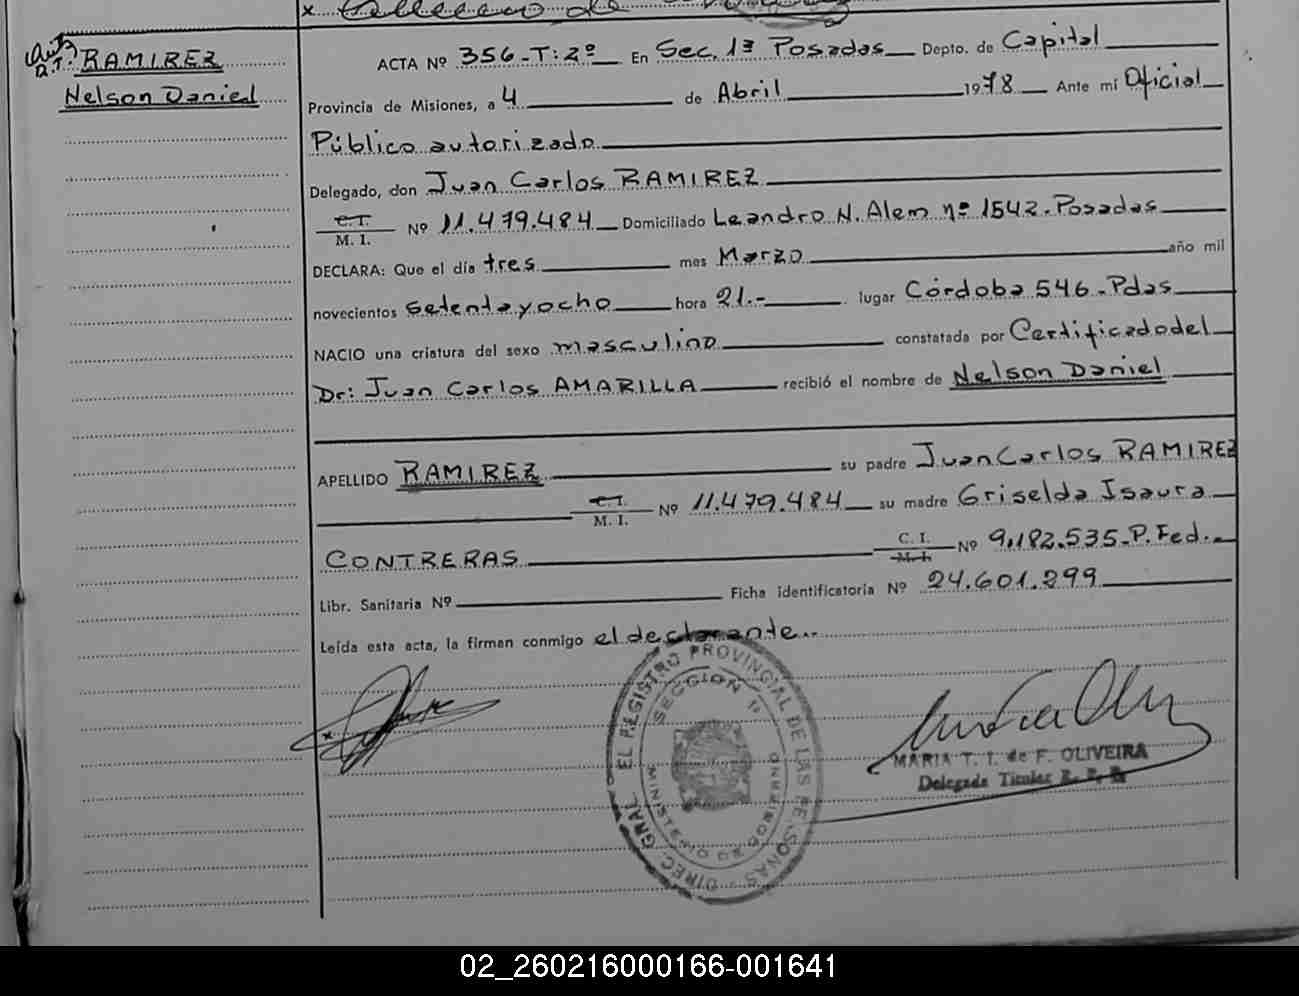 RAMIREZ
Nelson Daniel
ACTA Nº 356-T:2º En Sec. 1ª Posadas Depto. de Capital
Provincia de Misiones, a 4 de Abril 1978 Ante mí Oficial
Público autorizado
Delegado, don Juan Carlos RAMIREZ
C.I.
M. I. Nº 11.479.484 Domiciliado Leandro N. Alem nº 1542-Posadas
DECLARA: Que el día tres mes Marzo año mil
novecientos setentayocho hora 21.- lugar Córdoba 546-Pdas
NACIO una criatura del sexo masculino constatada por Certificadodel
Dr: Juan Carlos AMARILLA recibió el nombre de Nelson Daniel
APELLIDO RAMIREZ su padre Juan Carlos RAMIREZ
C.I.
M. I. Nº 11.479.484 su madre Griselda Isaura
CONTRERAS C. I.
M. I. Nº 9.182.535-P. Fed.-
Libr. Sanitaria Nº Ficha identificatoria Nº 24.601.299
Leída esta acta, la firman conmigo el declarante.-
DIREC. GRAL. EL REGISTRO PROVINCIAL DE LAS PERSONAS
SECCION 1ª
MINISTERIO DE GOBIERNO
MARIA T. I. de F. OLIVEIRA
Delegada Titular R. P. P.
02_260216000166-001641